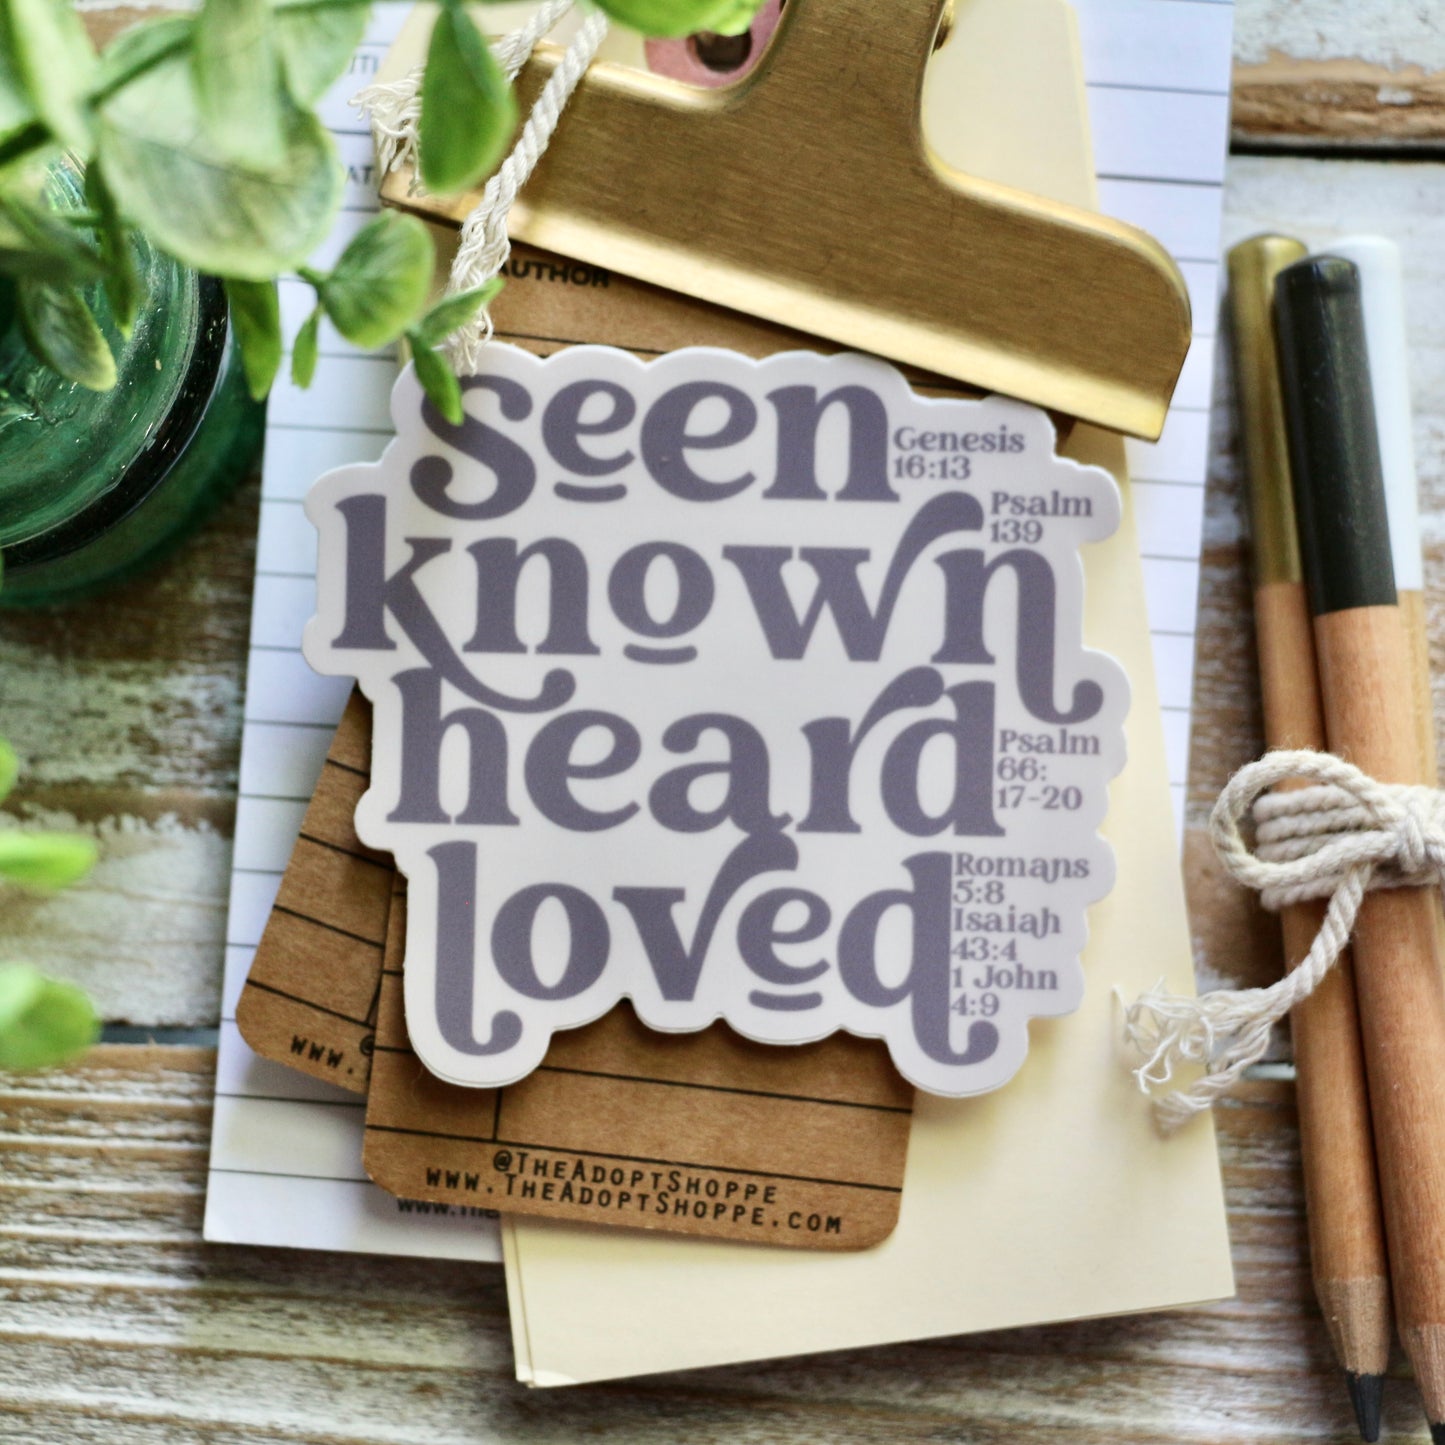 AUTHOR
seen
Genesis
16:13
known
Psalm
139
heard
Psalm
66:
17-20
loved
Romans
5:8
Isaiah
43:4
1 John
4:9
www.
@TheAdoptShoppe
www.TheAdoptShoppe.com